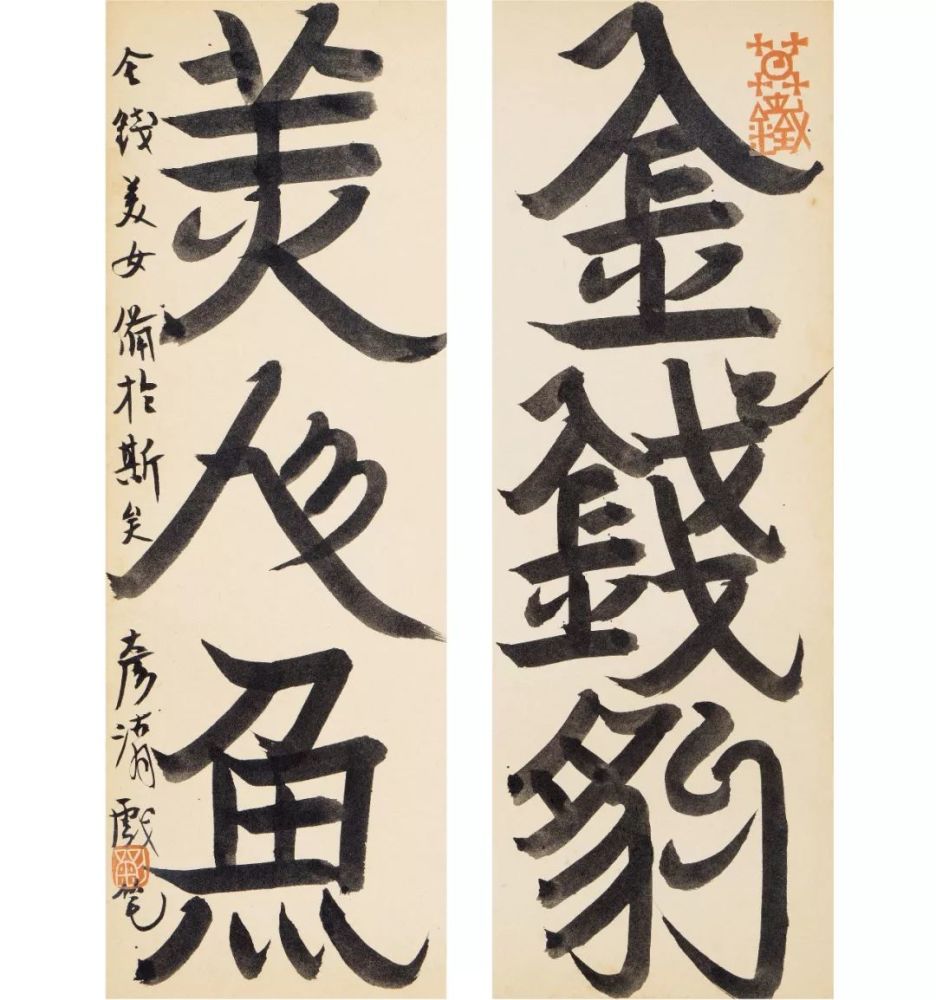 金錢豹
美人魚
金錢美女備於斯矣 彥湖戲笔